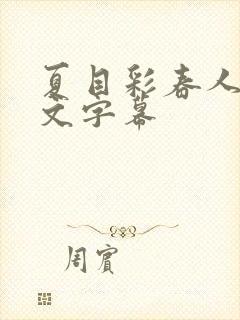 夏目彩春人
文字幕
周賓